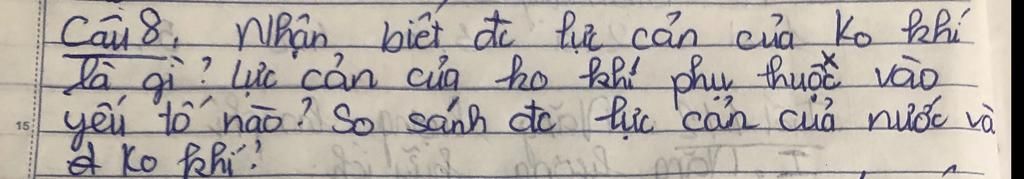 Câu 8. Nhận biết đc lực cản của ko khí
là gì? lực cản của ko khí phụ thuộc vào
15 yếu tố nào? So sánh đc lực cản của nước và
ko khí?